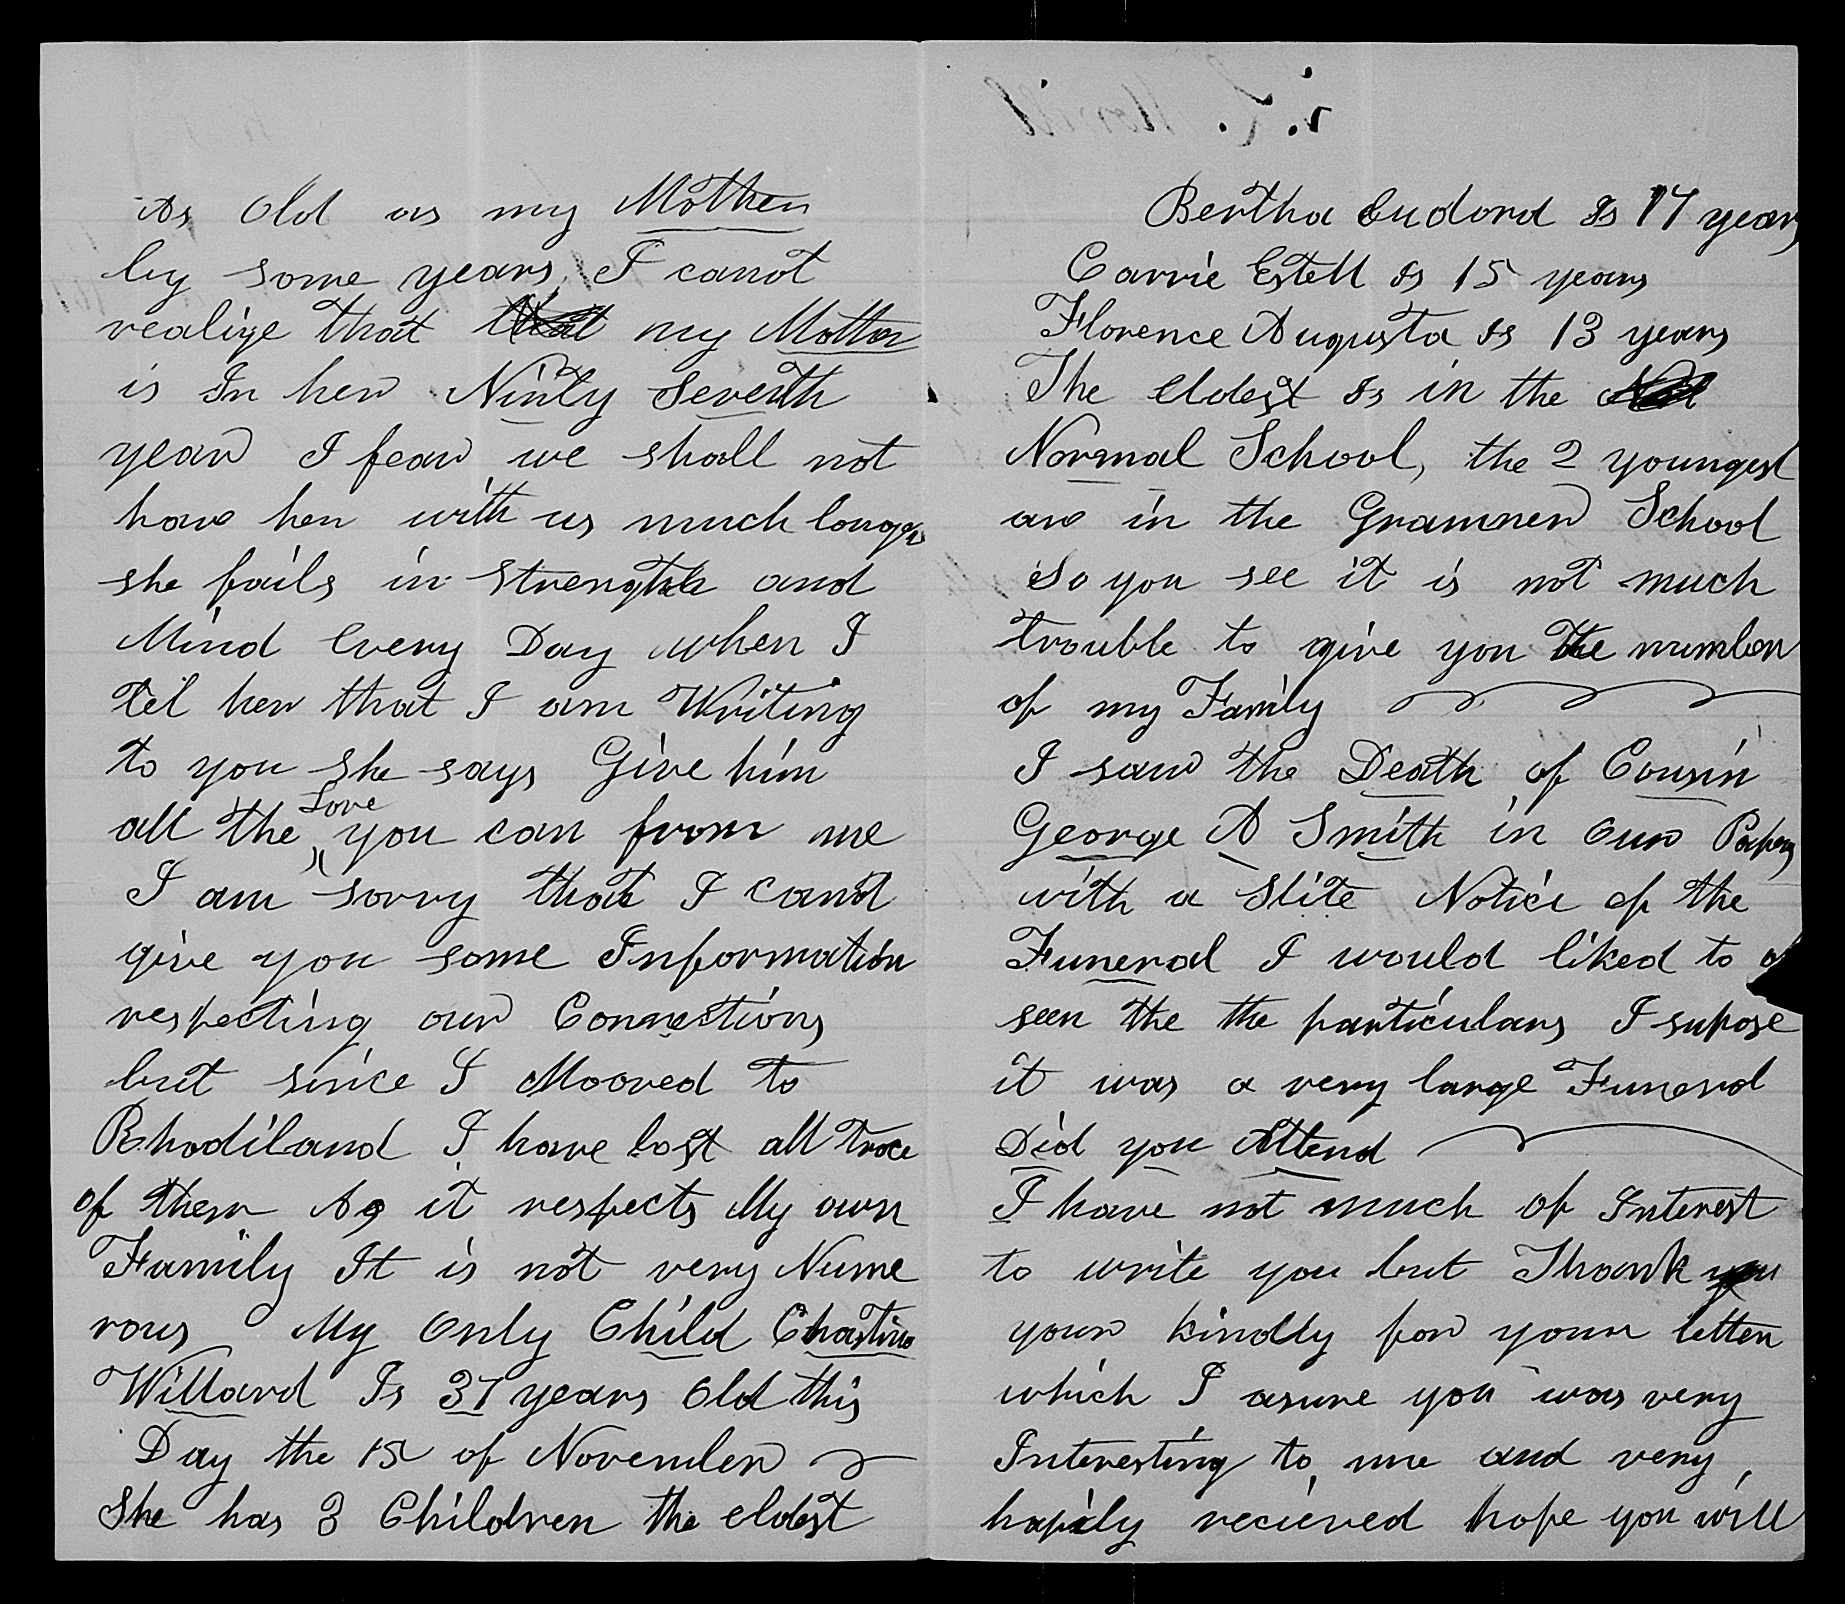 As Old as my Mother
by some years, I canot
realize that my Mother
is In her Ninty Seventh
year I fear we shall not
have her with us much longer
she fails in strength and
Mind Every Day when I
tel her that I am Writing
to you she says Give him
all the Love you can from me
I am sorry that I canot
give you some Information
respecting our Connections
but since I Mooved to
Rhodiland I have lost all trace
of them As it respects My own
Family It is not very Nume
rous My Only Child Chastina
Willard Is 37 years Old this
Day the 15 of November
She has 3 Children the eldest
Bertha Eudora Is 17 years
Carrie Estell Is 15 years
Florence Augusta Is 13 years
The Eldest Is in the
Normal School, the 2 youngest
are in the Grammer School
So you see it is not much
trouble to give you the number
of my Family
I saw the Death of Cousin
George A Smith in Our Papers
with a Slite Notice of the
Funeral I would liked to
seen the the particulars I supose
it was a very large Funeral
Did you Attend
I have not much of Interest
to write you but Thank you
your kindly for your letter
which I asure you was very
Interesting to me and very
hapily recieved hope you will